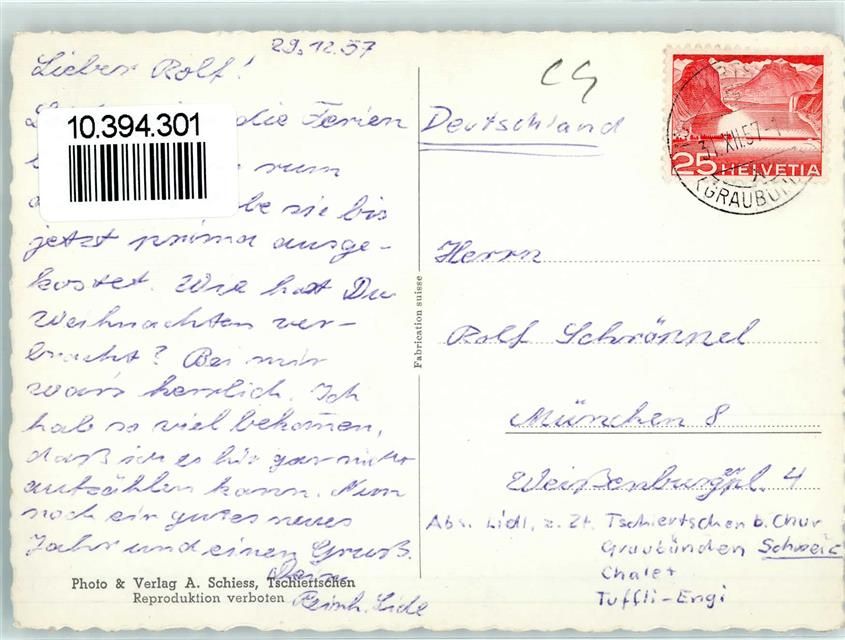 29.12.57
Lieber Rolf!
10.394.301
die Ferien
rum
sie bis
jetzt prima ausge-
kostet. Wie hast Du
Weihnachten ver-
bracht? Bei mir
wars herrlich. Ich
hab so viel bekommen,
daß ich es hier gar nicht
aufzählen kann. Nun
noch ein gutes neues
Jahr und einen Gruß.
Dein
Reinh. Lidl
Photo & Verlag A. Schiess, Tschiertschen
Reproduktion verboten
Fabrication suisse
Deutschland
25 HELVETIA
31.XII.57
(GRAUBÜN
Herrn
Rolf Schrönnel
München 8
Weißenburgpl. 4
Abs. Lidl, z. Zt. Tschiertschen b. Chur
Graubünden Schweiz
Chalet
Tuffli-Engi